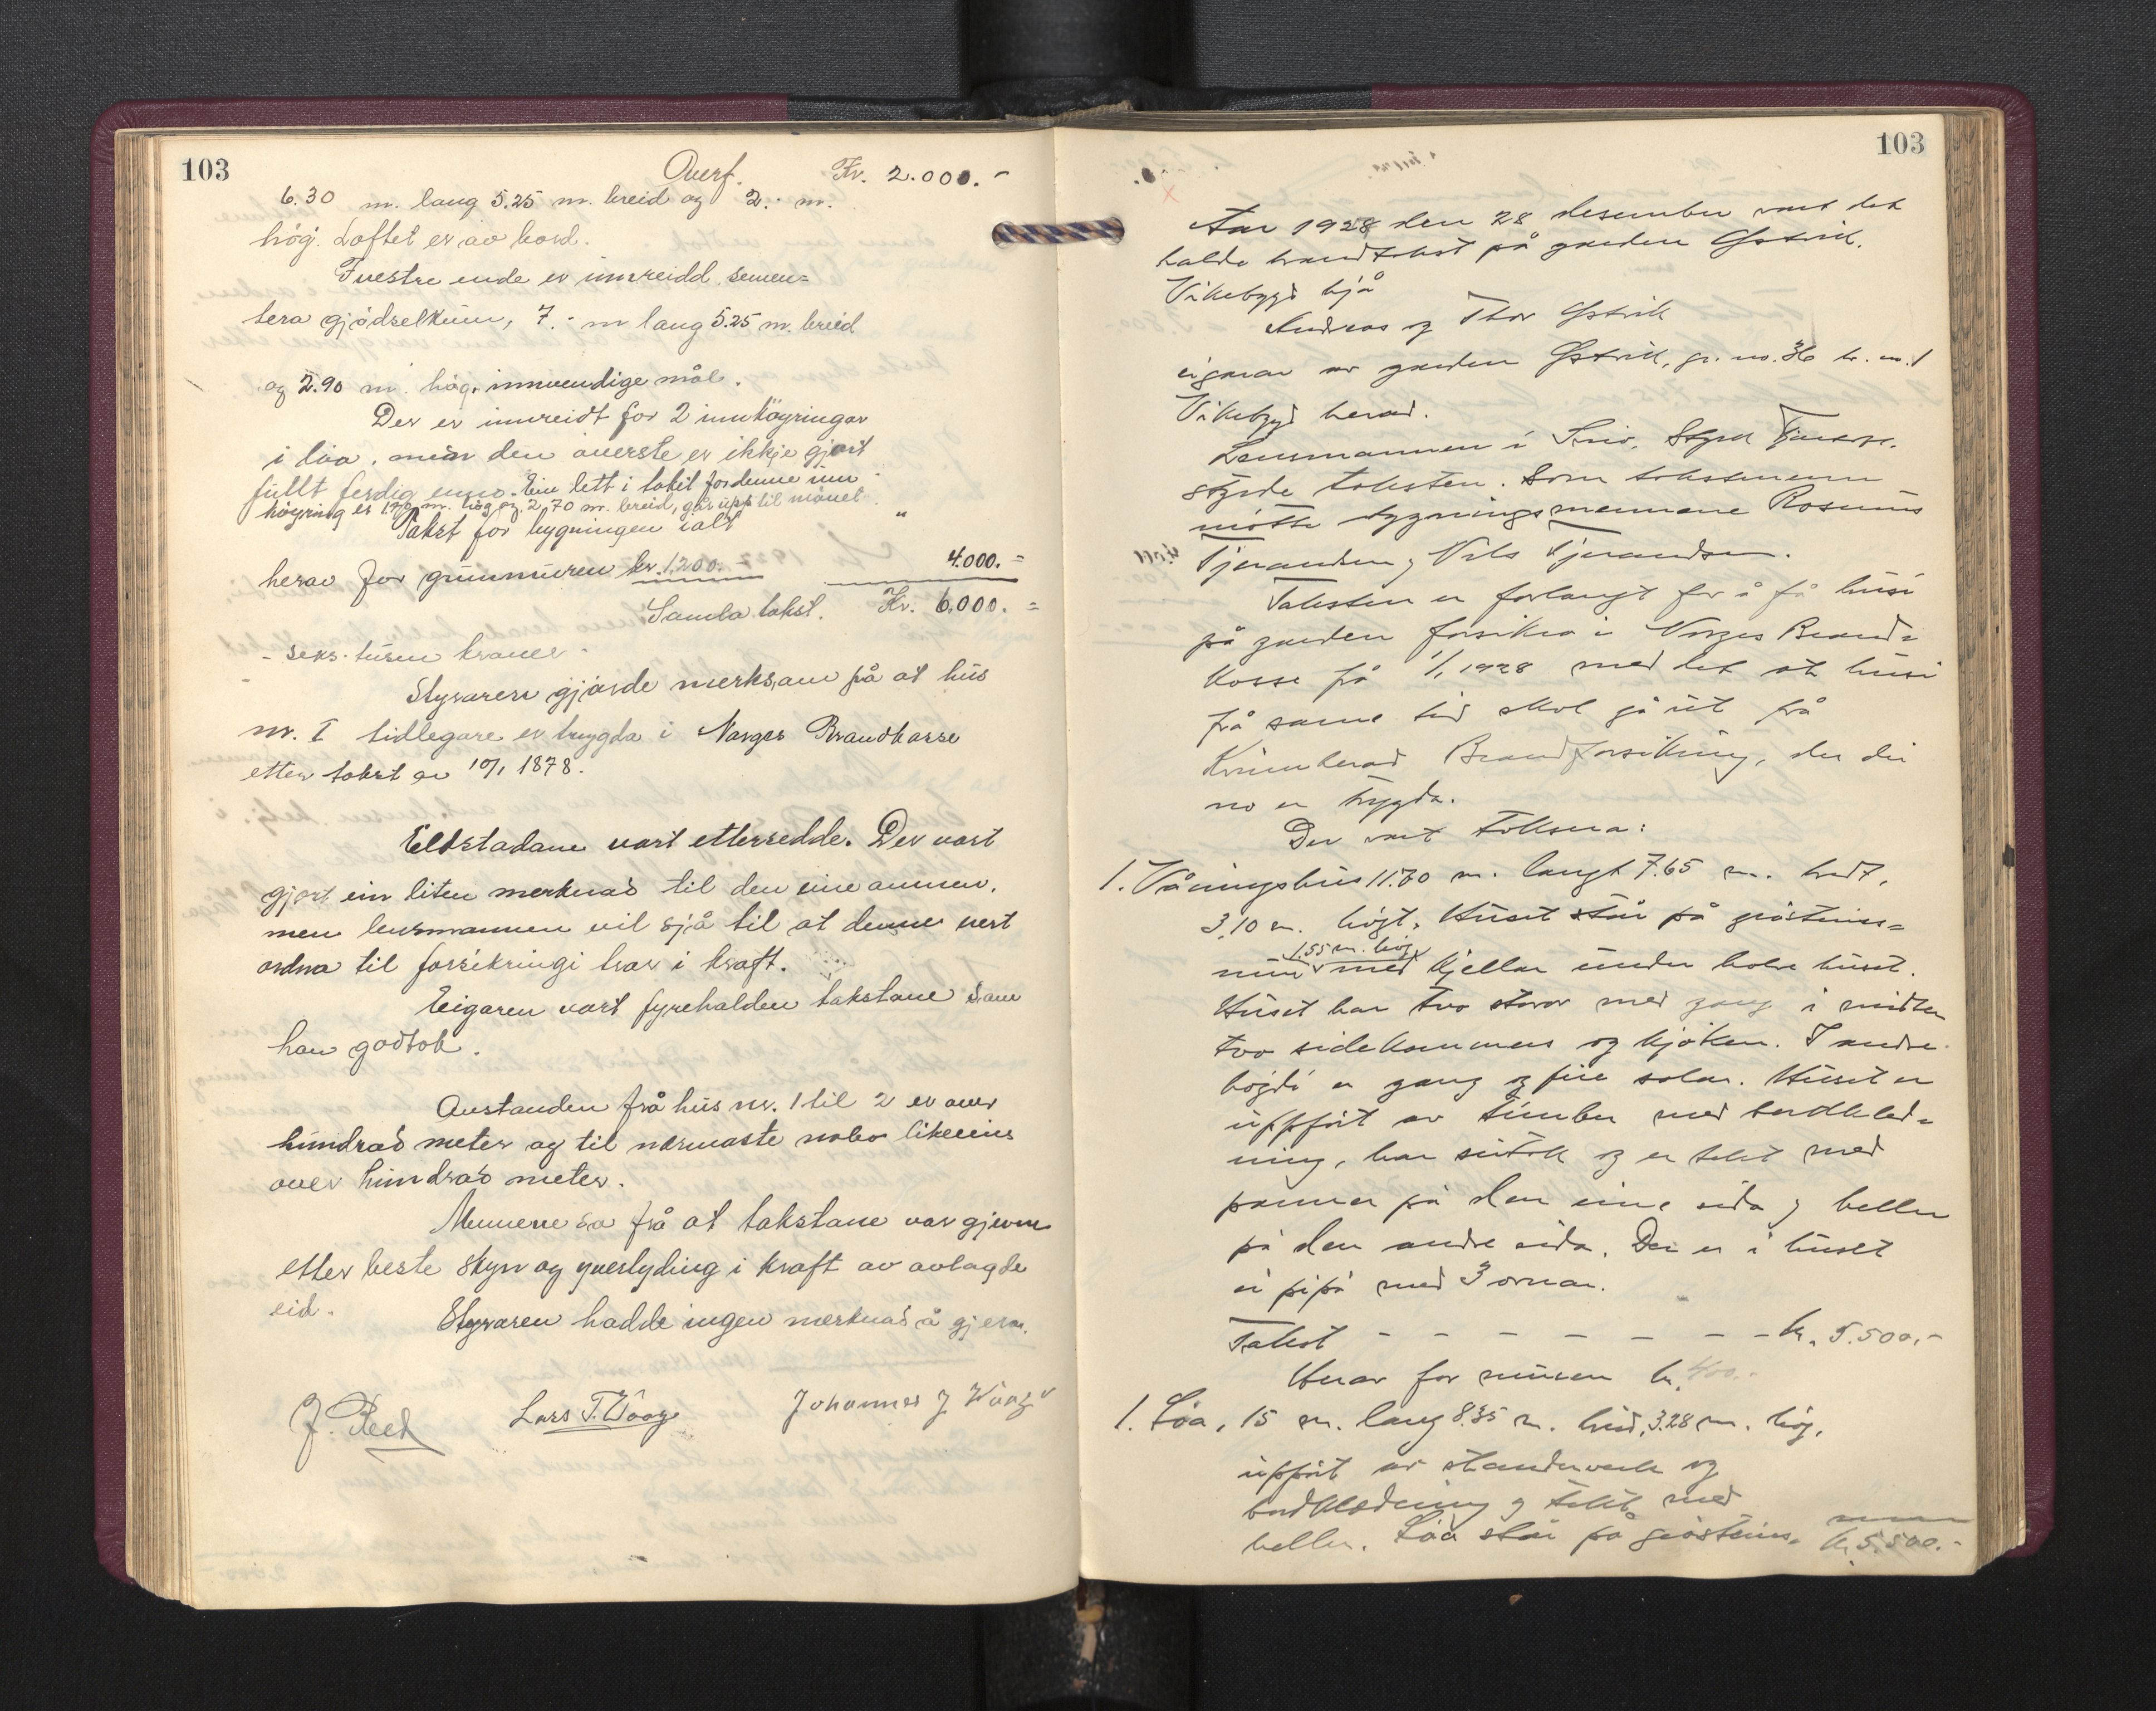 103
Overf. Kr. 2.000.-
6.30 m. lang 5.25 m. breid og 2.- m.
høg. Loftet er av bord.
I vestre ende er innreidd semen-
tera gjødselkum, 7.- m lang 5.25 m. breid
og 2.90 m. høg, innvendige mål.
Der er innreidt for 2 innkøyringar
i løa, men den øverste er ikkje gjort
fullt ferdig enno. Ein lett i taket for denne inn-
køyring er 1.70 m. høg og 2,70 m. breid, går upp til mønet.
Takst for bygningen ialt "
herav for grunnmuren kr. 1200.- 4.000.-
Samla takst. Kr. 6.000.-
- seks-tusen kroner -
Styraren gjørde merksam på at hus
nr. I tidlegare er trygda i Norges Brandkasse
etter takst av 10/1 1878.
Eldstadane vart ettersedde. Der vart
gjort ein liten merknad til den eine omnen,
men lensmannen vil sjå til at denne vert
ordna til forsikringi trær i kraft.
Eigaren vart fyrehalden takstane som
han godtok.
Avstanden frå hus nr. 1 til 2 er over
hundrad meter og til nærmaste nabo likeeins
over hundrad meter.
Mennene sa frå at takstane var gjevne
etter beste skyn og yverlyding i kraft av avlagde
eid.
Styraren hadde ingen merknad å gjera.
Lars T. Våage Johannes J Våage
103
Aar 1928 den 28 desember vart det
halde brandtakst på garden Østvik,
Vikebygd hjå
Andreas og Thor Østvik
eigarar av garden Østvik, gr. no. 36 br. no. 1
Vikebygd herad.
Lensmannen i
styrde taksten. Som takstmenn
møtte bygningsmennene Rasmus
Tjerandsen, Nils Tjerandsen.
Taksten er forlangt for å få husi
på garden forsikra i Norges Brand-
kasse på 1/1 1928 med det at husi
frå same tid skal gå ut frå
Kvinnherad Brandforsikring, der dei
no er trygda.
Der vart taksera:
1. Våningshus 11.70 m. langt 7.65 m. bredt,
3.10 m. høgt. Huset står på gråsteins-
mur 1.55 m. høg med kjellar under halve huset.
Huset har tvo stovor med gang i midten
tvo sidekammers og kjøken. I andre
høgdi er gang og fire salar. Huset er
uppført av timber med bordkled-
ning, har sutak og er tekt med
panner på den eine sida og heller
på den andre sida. Der er i huset
ei pipa med 3 omnar.
Takst - - - - - - - - kr. 5.500.-
Herav for muren kr. 400.-
1. Løa, 15 m. lang 8.35 m. breid, 3.28 m. høg,
uppført av standerverk og
bordklædning og tekt med
heller. Løa står på gråsteins-
kr. 5.500.-